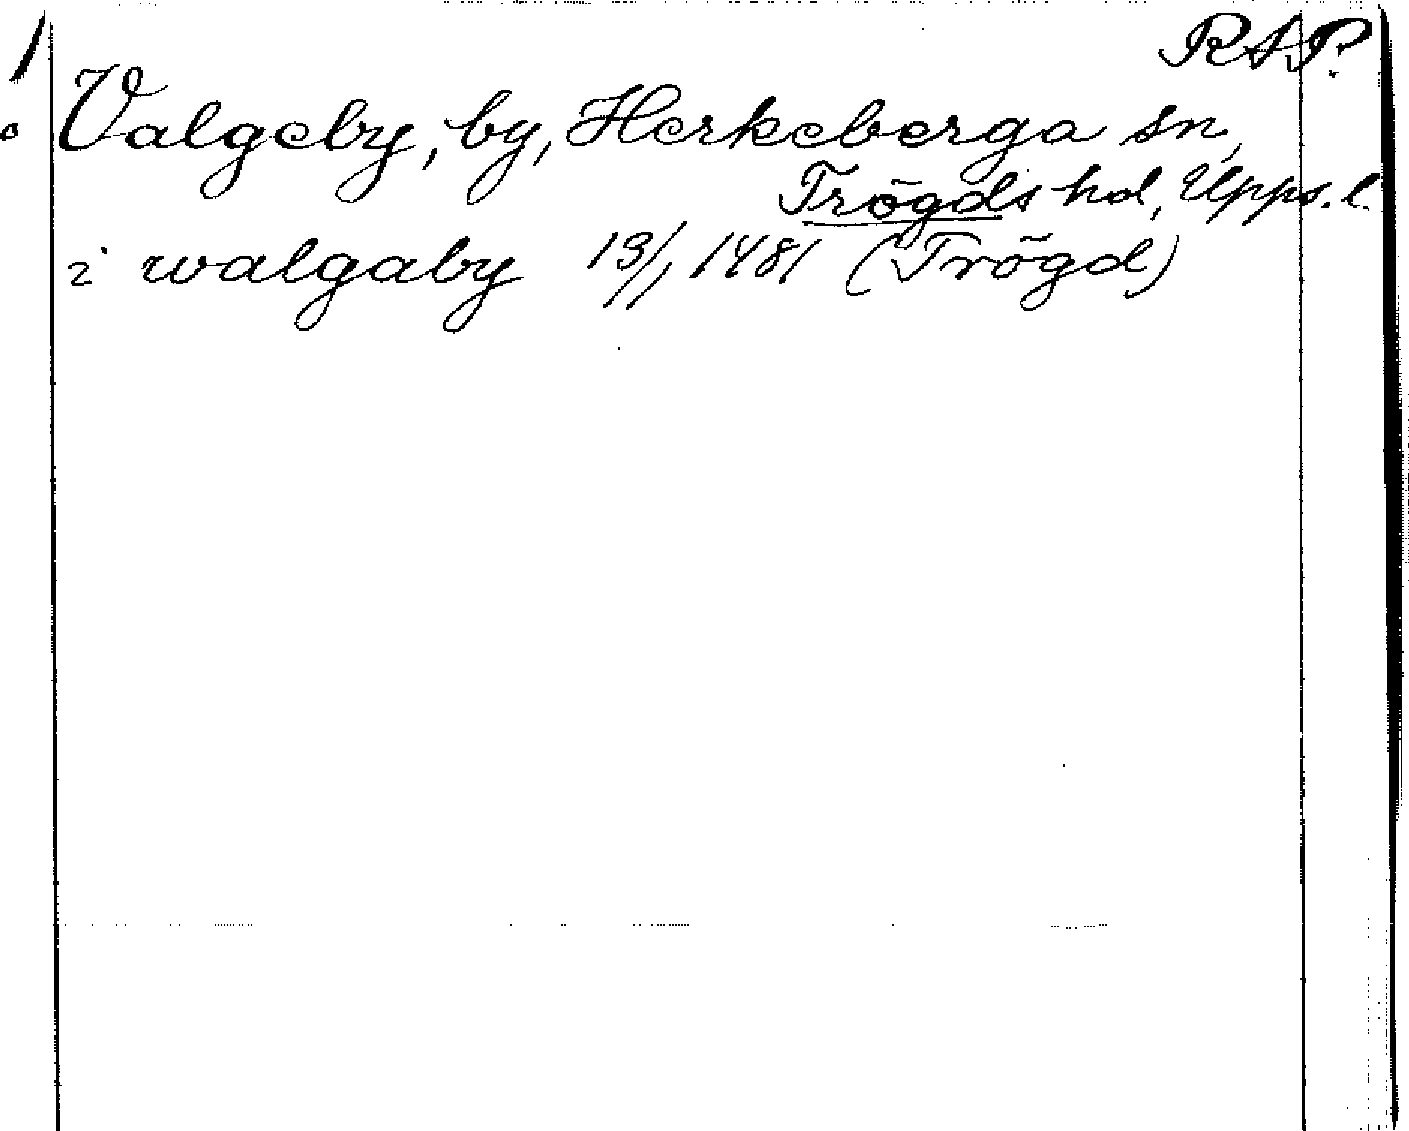 RAP.
Valgeby, by, Herkeberga sn,
Trögds hd, Upps. l.
i walgaby 13/1 1481 (Trögd)